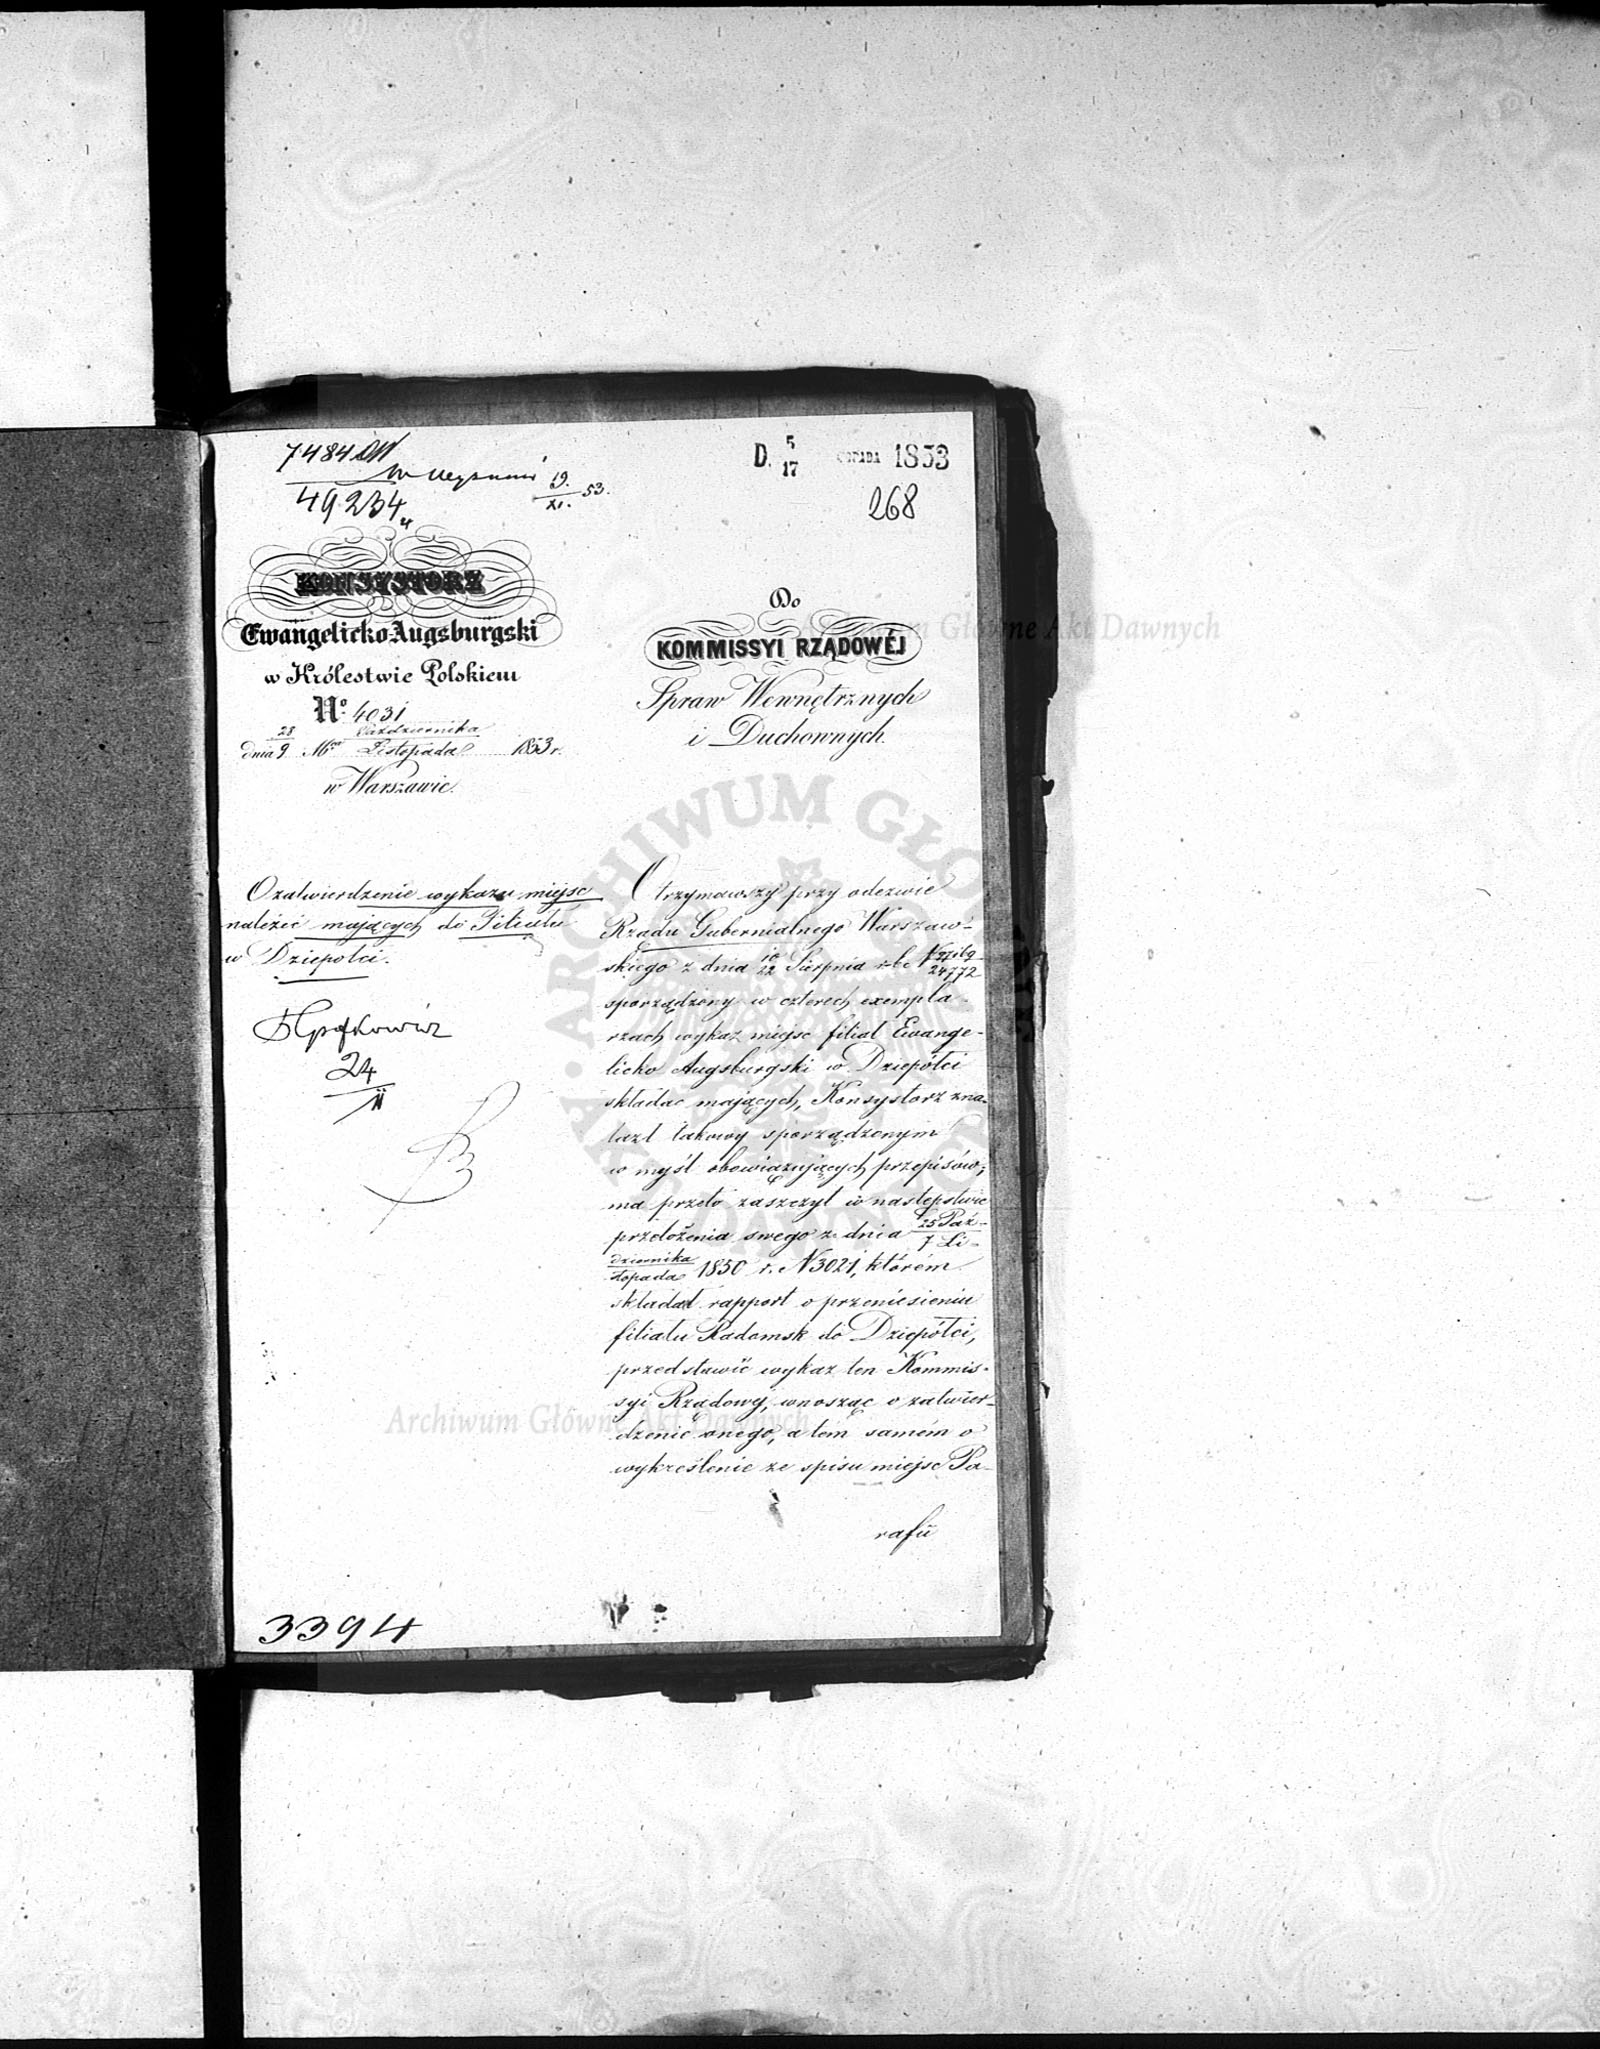 7484
49234
19. 53.
XI.
D. 5
17
1853
268
KONSYSTORZ
Ewangelicko-Augsburgski
w Królestwie Polskiem
Nº 4031
28 Października
dnia 9 Mca Listopada 1853 r.
w Warszawie.
Do
KOMMISSYI RZĄDOWÉJ
Spraw Wewnętrznych
i Duchownych.
O zatwierdzenie wykazu miejsc
należeć mających do Filiału
w Dziepólci.
24
II
Otrzymawszy przy odezwie
Rządu Gubernialnego Warszaw-
skiego z dnia 10/22 Sierpnia r. b. N
24772
sporządzony w czterech exempla-
rzach wykaz miejsc filiał Ewange-
licko Augsburgski w Dziepółci
składać mających, Konsystorz zna-
lazł takowy sporządzonym
w myśl obowiązujących przepisów;
ma przeto zaszczyt w następstwie
przełożenia swego z dnia 25 Paź-
7 Li-
dziernika
stopada 1850 r. N 3021, którém
składał rapport o przeniesieniu
filiału Radomsk do Dziepółci,
przedstawić wykaz ten Kommis-
syi Rządowéj, wnosząc o zatwier-
dzenie onego, a tém samém o
wykreślenie ze spisu miejsc Pa-
rafii
3394
Archiwum Główne Akt Dawnych
Archiwum Główne Akt Dawnych
ARCHIWUM GŁÓWNE AKT DAWNYCH